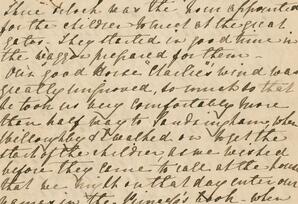 Three o'clock was the hour appointed
for the children to meet at the great
gates. They started in good time in
the waggon prepared for them.
Our good horse "Charlie's" wind was
greatly improved, so much so that
he took us very comfortably more
than half way to Sandringham, when
Willoughby & I walked on to get the
start of the children, as we wished
before they came to call at the house
that we might on that day enter our
names in the Princess's book. When